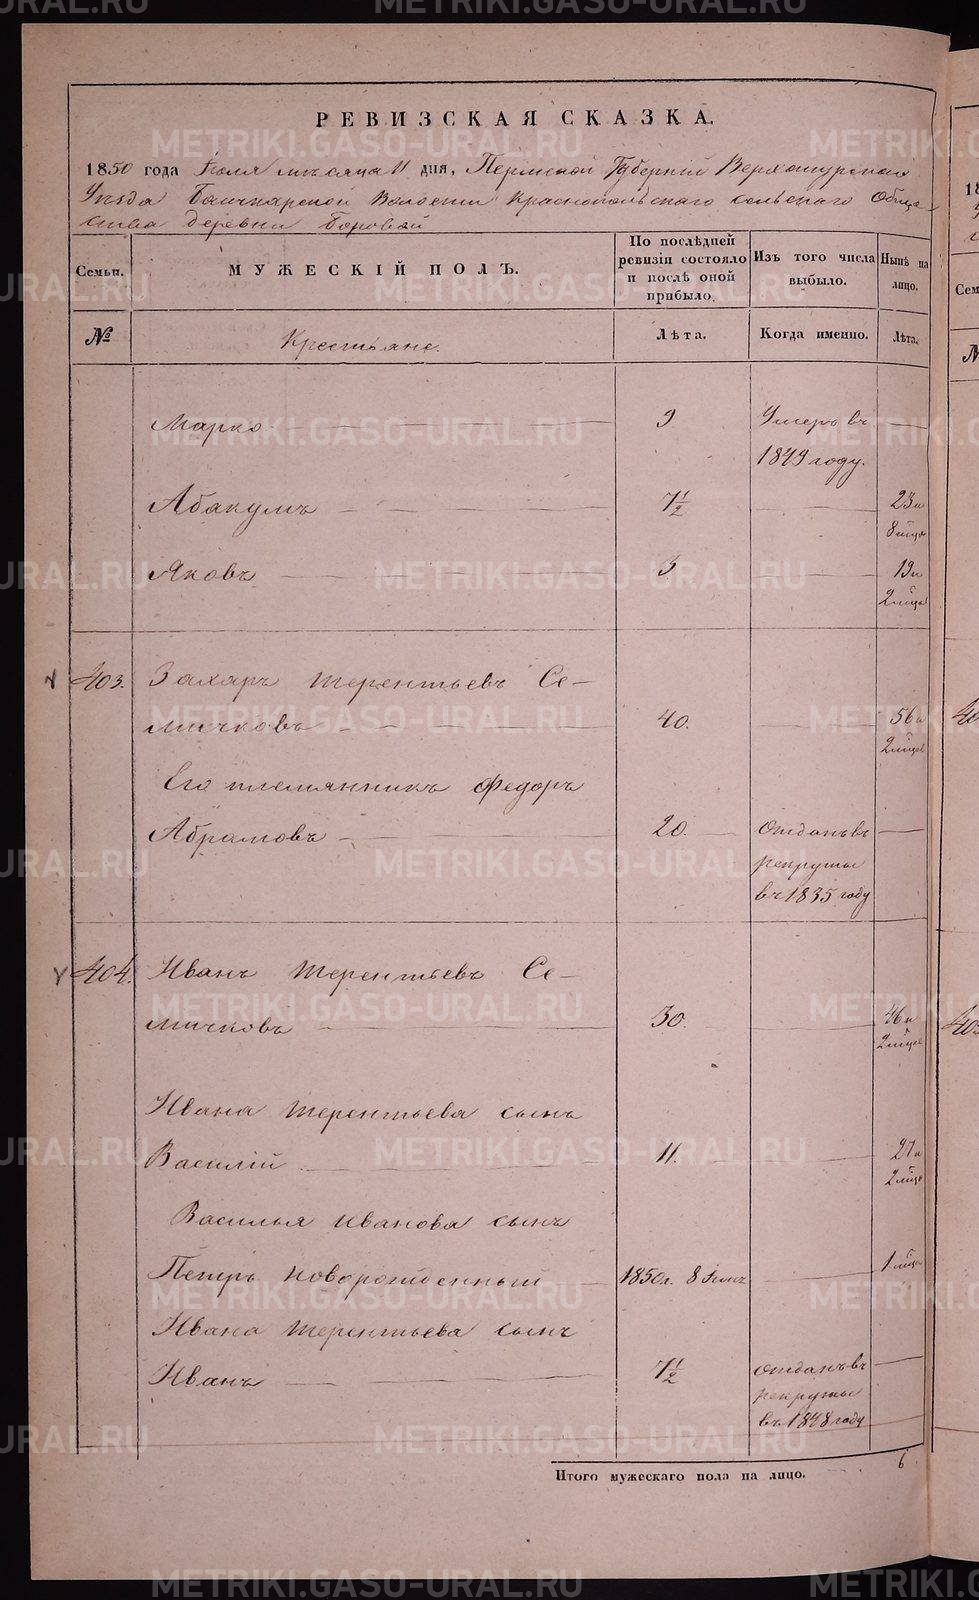 РЕВИЗСКАЯ СКАЗКА.
1850 года Іюля мѣсяца 11 дня, Пермской Губерніи Верхотурскаго
Уѣзда Башкарской Волости Краснопольскаго сельскаго Обще-
ства деревни Боровой
Семьи. МУЖЕСКІЙ ПОЛЪ. По послѣдней ревизіи состояло и послѣ оной прибыло. Изъ того числа выбыло. Нынѣ на лицо.
№ Крестьяне. Лѣта. Когда именно. Лѣта.
Марко 9 Умеръ въ
1849 году.
Абакумъ 7 1/2 23 и
8 мѣсц
Яковъ 3 19 и
2 мѣсц
403. Захаръ Терентьевъ Се-
мичковъ 40. 56 и
2 мѣсц
Его племянникъ Федоръ
Абрамовъ 20. Отданъ въ
рекруты
въ 1835 году
404. Иванъ Терентьевъ Се-
мичковъ 30. 46 и
2 мѣсц
Ивана Терентьева сынъ
Василій 11. 27 и
2 мѣсц
Василья Иванова сынъ
Петръ новорожденный 1850 г. 8 1 мѣсц
Ивана Терентьева сынъ
Иванъ 7 1/2 отданъ въ
рекруты
въ 1848 году
Итого мужескаго пола на лицо. 6
METRIKI.GASO-URAL.RU